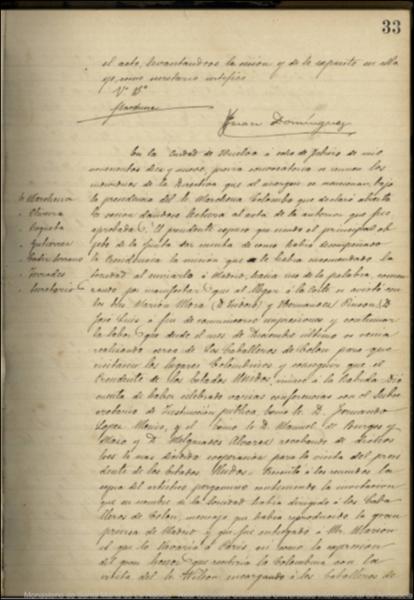 33
el acto, levantandose la sesion y de lo expuesto en ella
yo, como secretario certifico
Vº Bº
Marchena
Juan Dominguez
En la Ciudad de Huelva á once de Febrero de mil
novecientos diez y nueve, previa convocatoria se reunen los
miembros de la Directiva que al margen se mencionan, bajo
Sr. Marchena la presidencia del Sr. Marchena Colombo que declaró abierta
" Olivera la sesion dandose lectura al acta de la anterior que fue
aprobada. El presidente expuso que siendo el principal ob
" Gutierrez jeto de la Junta dar cuenta de como habia desempeñado
la Presidencia la mision que le habia encomendado la
" Terrades Sociedad al enviarlo á Madrid, hacia uso de la palabra, comen
" Secretario zando por manifestar que al llegar á la Corte se avistó con
los Sres. Marion y Hernandez Pinzon (D.
José Luis) á fin de comunicarse impresiones y continuar
la labor que desde el mes de Diciembre ultimo se venia
realizando cerca de Los Caballeros de Colon para que
visitasen los lugares Colombinos y conseguir que el
Presidente de los Estados Unidos, viniese á la Rabida. Dió
cuenta de haber celebrado varias conferencias con el Subse
cretario de Instruccion publica, Excmo. Sr. D. Fernando
Lopez Monis, y el Excmo. Sr. D. Manuel de Burgos y
Mazo y D. Melquiades Alvarez recabando de dichos
Sres. la mas decidida cooperacion para la visita del presi
dente de los Estados Unidos. Enseñó á los reunidos la
copia del artistico pergamino conteniendo la invitacion
que en nombre de la Sociedad habia dirigido á los Caba
lleros de Colon, mensaje que habia reproducido la gran
prensa de Madrid y que fué entregado á Mr. Marion
el que lo llevaria á Paris asi como la expresion
del gran honor que sentiria la Colombina con la
visita del Sr. Wilson encargando á los Caballeros de